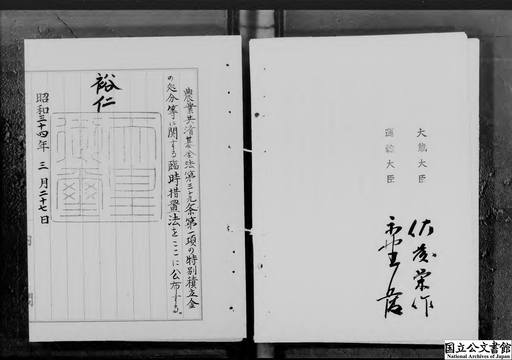 大蔵大臣 佐藤栄作
運輸大臣 永野護
農業共済基金法第三十九条第一項の特別積立金
の処分等に関する臨時措置法をここに公布する。
裕仁
天皇
御璽
昭和三十四年 三月二十七日
国立公文書館
National Archives of Japan